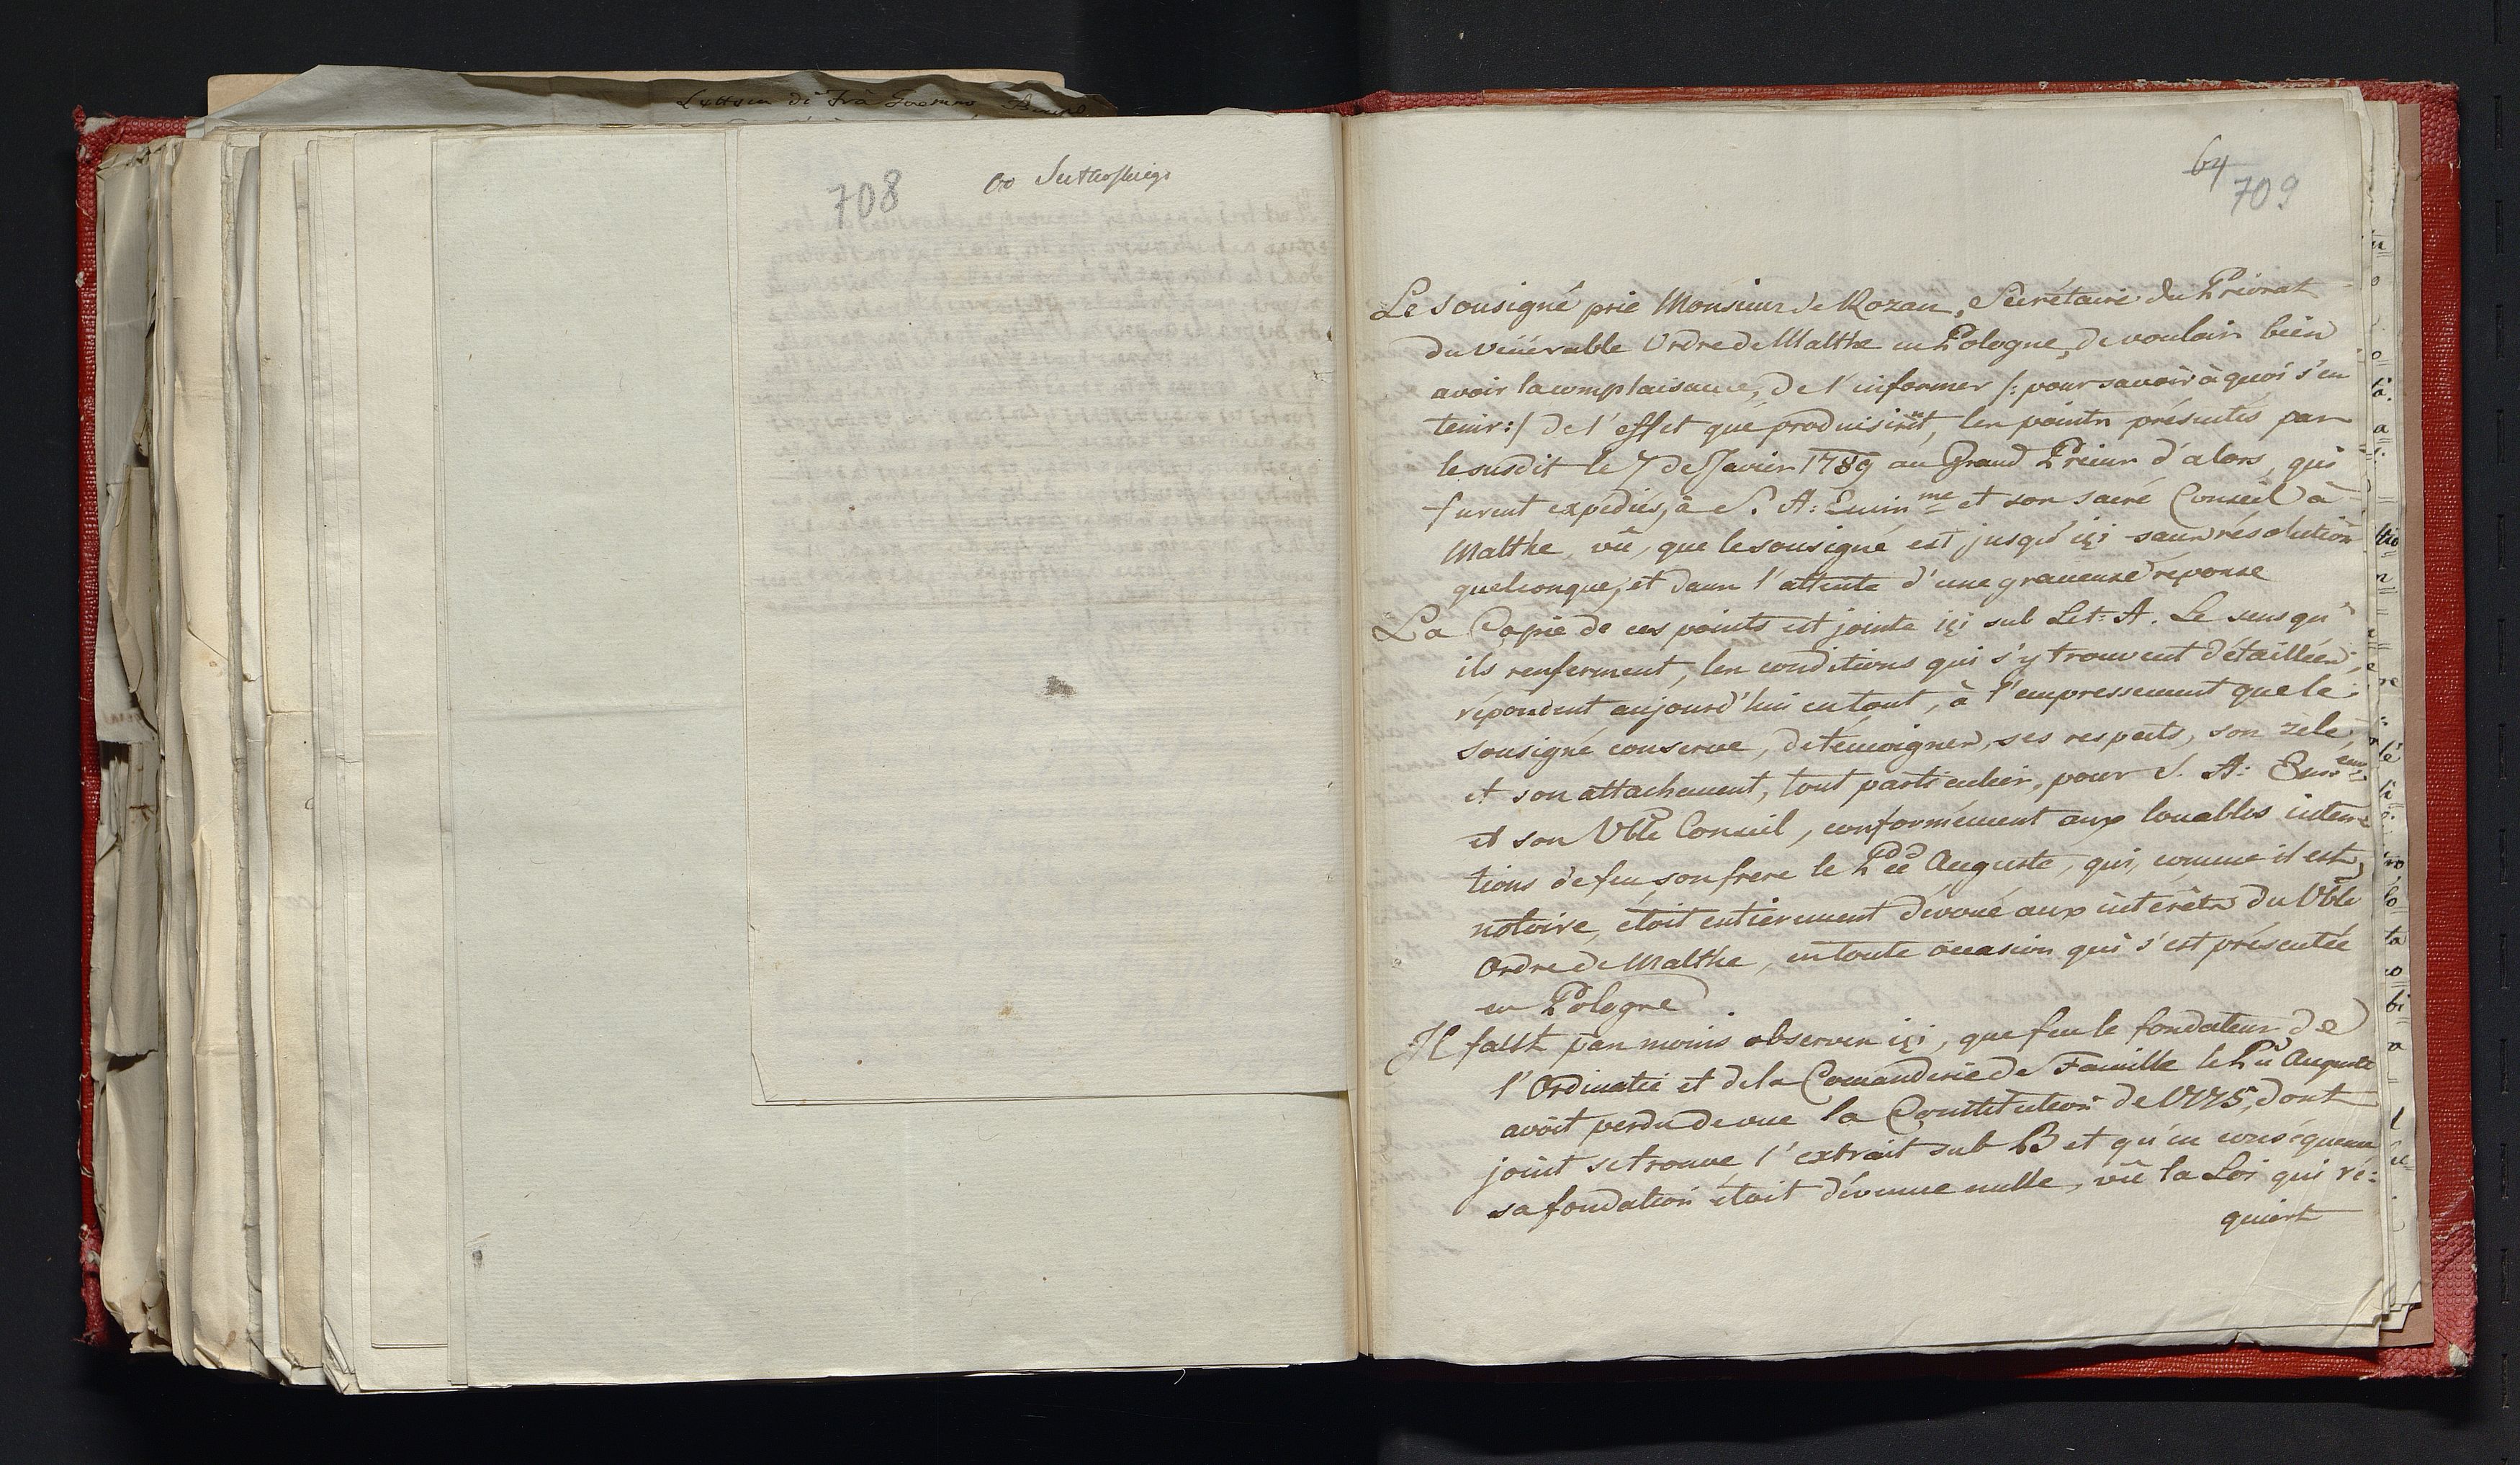 Lettera di Frà
708
Xo Sułkowskiego
64
709
Le sousigné prie Monsieur de Rozan, Sécrétaire du Prieurat
du vénérable Ordre de Malthe en Pologne, de vouloir bien
avoir la complaisance, de l'informer /: pour savoir à quoi s'en
tenir :/ de l'effet que produisirent, les points présentés par
le susdit le 7 de Janvier 1789 au Grand Prieur d'alors, qui
furent expédiés, à S. A: Emin me et son sacré Conseil à
Malthe, vû, que le sousigné est jusqu'içi sans résolution
quelconque, et dans l'attente d'une gracieuse réponse
La Copie de ces points est jointe içi sub Let: A. Le sens qu'
ils renferment, les conditions qui s'y trouvent détaillées,
répondent aujourd'hui en tout, à l'empressement que le
sousigné conserve, de témoigner, ses respects, son zele,
et son attachement, tout particulier, pour S. A: Em
et son Vble Conseil, conformément aux louables inten=
tions de feu son frere le Pce Auguste, qui, comme il est
notoire, étoit entièrement dévoué aux intérêts du Vble
Ordre de Malthe, en toute occasion qui s'est présentée
en Pologne.
Il faut pas moins observer içi, que feu le fondateur de
l'Ordinatie et de la Comanderie de Famille le Pce Auguste
avoit perdu de vue la Constitution de 1775, dont
joint se trouve l'extrait sub B et qu'en conséquence
sa fondation étoit dévenue nulle, vû la Loi qui ré=
quiert